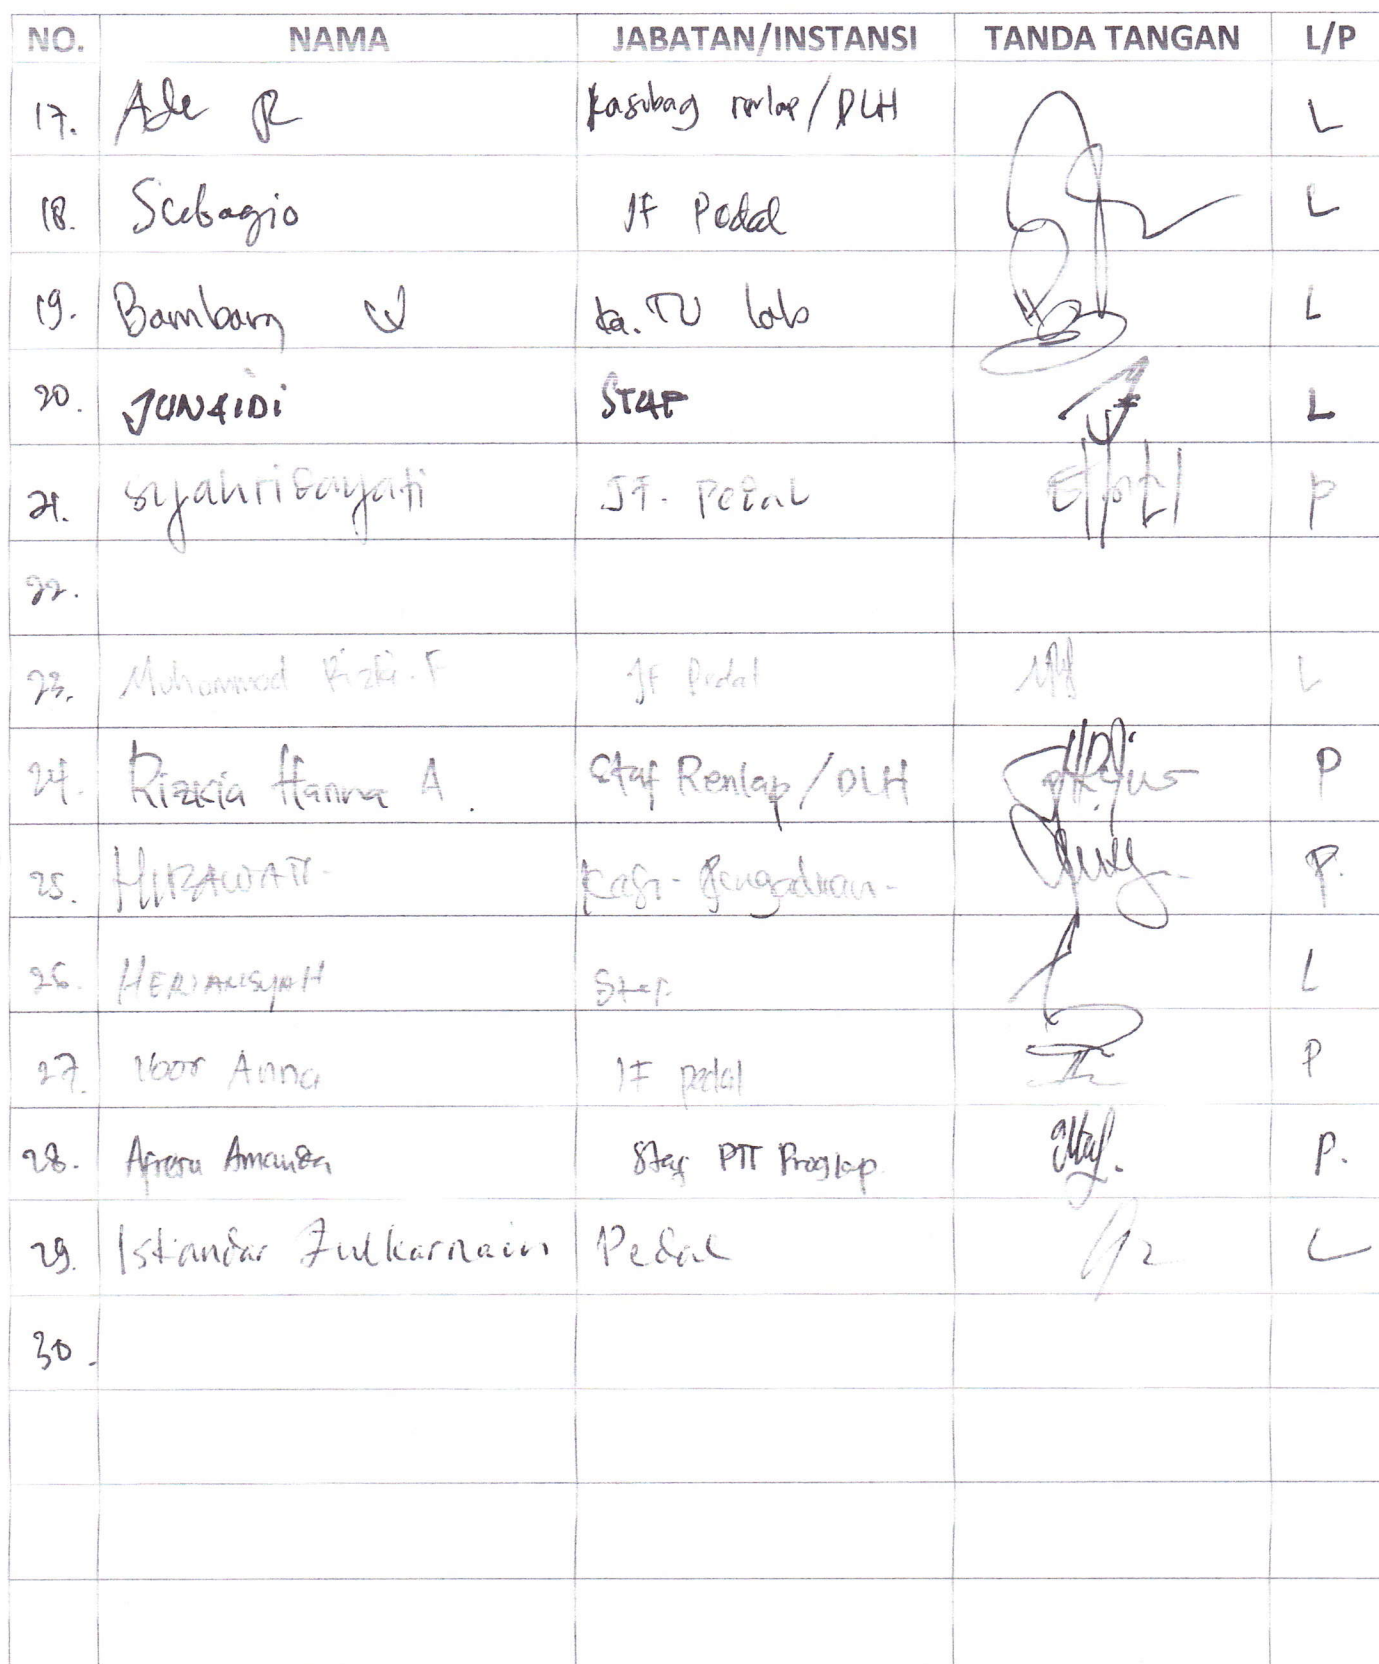 NO. NAMA JABATAN/INSTANSI TANDA TANGAN L/P
17. Ade R Kasubag renlap/DLH L
18. Subagio JF Pedal L
19. Bambang W Ka. TU lab L
20. JUNAIDI STAF L
21. syahribayati JF. Pedal P
22.
23. Muhammad Rizki. F JF Pedal L
24. Rizkia Hanna A. Staf Renlap/DLH P
25. Kasi - Pengaduan - P.
26. HERIANSYAH Staf L
27. Noor Anna JF pedal P
28. Amanda Staf PTT Proglap P.
29. Iskandar Zulkarnain Pedal L
30.